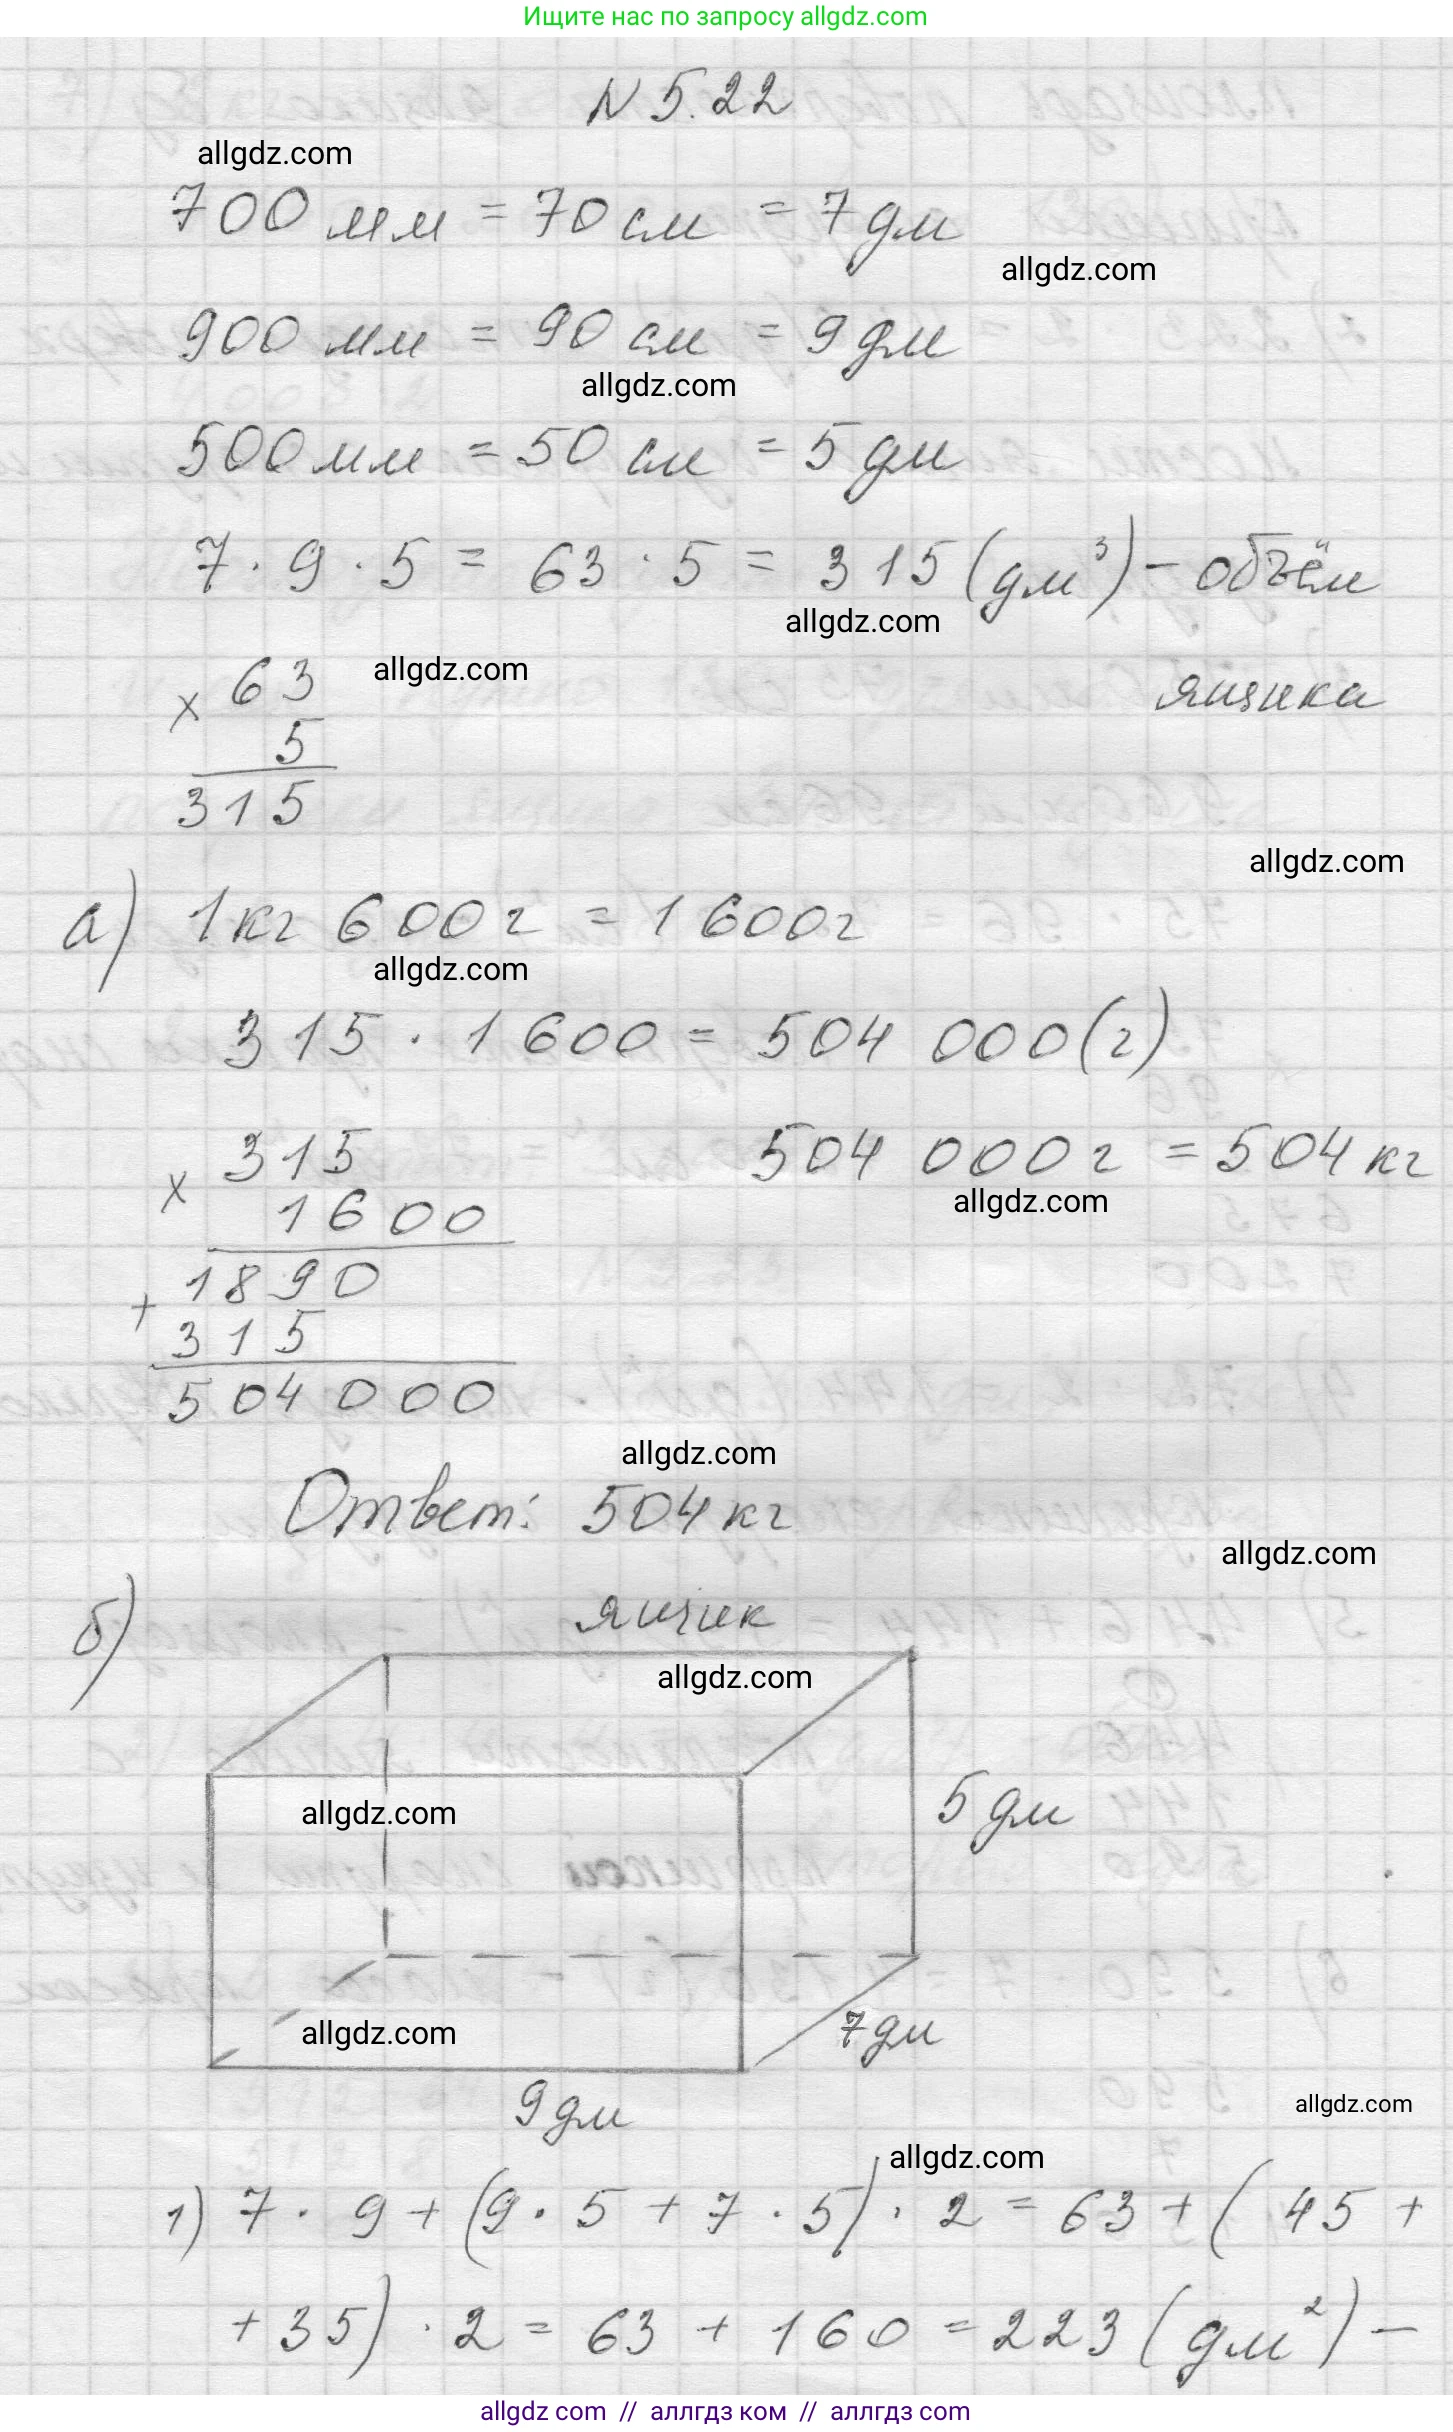 Ищите нас по запросу allgdz.com
N 5.22
allgdz.com
700 мм = 70 см = 7 дм
allgdz.com
900 мм = 90 см = 9 дм
allgdz.com
500 мм = 50 см = 5 дм
7 · 9 · 5 = 63 · 5 = 315 (дм³) - объём
allgdz.com
ящика
allgdz.com
× 63
5
315
allgdz.com
а) 1 кг 600 г = 1 600 г
allgdz.com
315 · 1 600 = 504 000 (г)
504 000 г = 504 кг
allgdz.com
× 315
1600
+ 1890
315
504 000
allgdz.com
Ответ: 504 кг
allgdz.com
б)
ящик
allgdz.com
5 дм
allgdz.com
7 дм
allgdz.com
9 дм
allgdz.com
allgdz.com
1) 7 · 9 + (9 · 5 + 7 · 5) · 2 = 63 + ( 45 +
+ 35) · 2 = 63 + 160 = 223 (дм²) -
allgdz com // аллгдз ком // аллгдз com